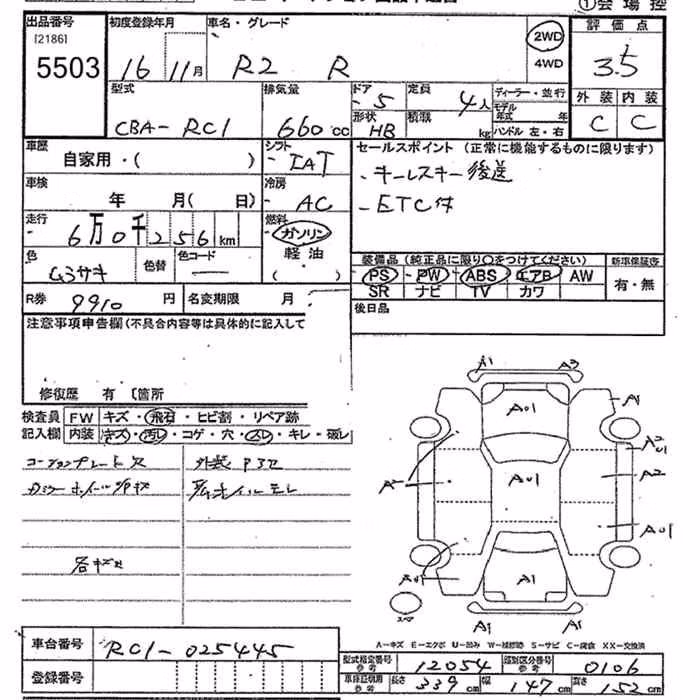 ①会場控
出品番号 [2186] 5503
初度登録年月 16 11月
車名・グレード R2 R
2WD 4WD
評価点 3.5
型式 CBA-RC1
排気量 660cc
ドア 5
定員 4人
ディーラー・並行
形状 HB
積載 kg
モデル年式 年
ハンドル 左・右
外装 内装
C C
車歴 自家用・( )
シフト IAT
セールスポイント (正常に機能するものに限ります)
・キーレスキー後送
・ETC付
車検 年 月( 日)
冷房 AC
走行 6万0千256km
燃料 ガソリン 軽油 ( )
色 ムラサキ
色替
色コード —
装備品 (純正品に限り○をつけてください) 新車保証書
PS PW ABS エアB AW 有・無
SR ナビ TV カワ
R券 9910円
名変期限 月
後日品
注意事項申告欄(不具合内容等は具体的に記入して
修復歴 有 〔箇所
検査員記入欄
FW キズ・飛石・ヒビ割・リペア跡
内装 キズ・汚レ・コゲ・穴・スレ・キレ・破レ
コーションプレート欠
各キズ
A1 A3
A01 A1
A2 A01
A01 A2
A01
A01 A1
A1 A1
スペア
A-キズ E-エクボ U-凹み W-補修跡 S-サビ C-腐食 XX-交換済
車台番号 RC1-025445
登録番号
型式指定番号 参考 12054
類別区分番号 参考 0106
車庫証明用 参考 長さ 339cm 幅 147cm 高さ 152cm